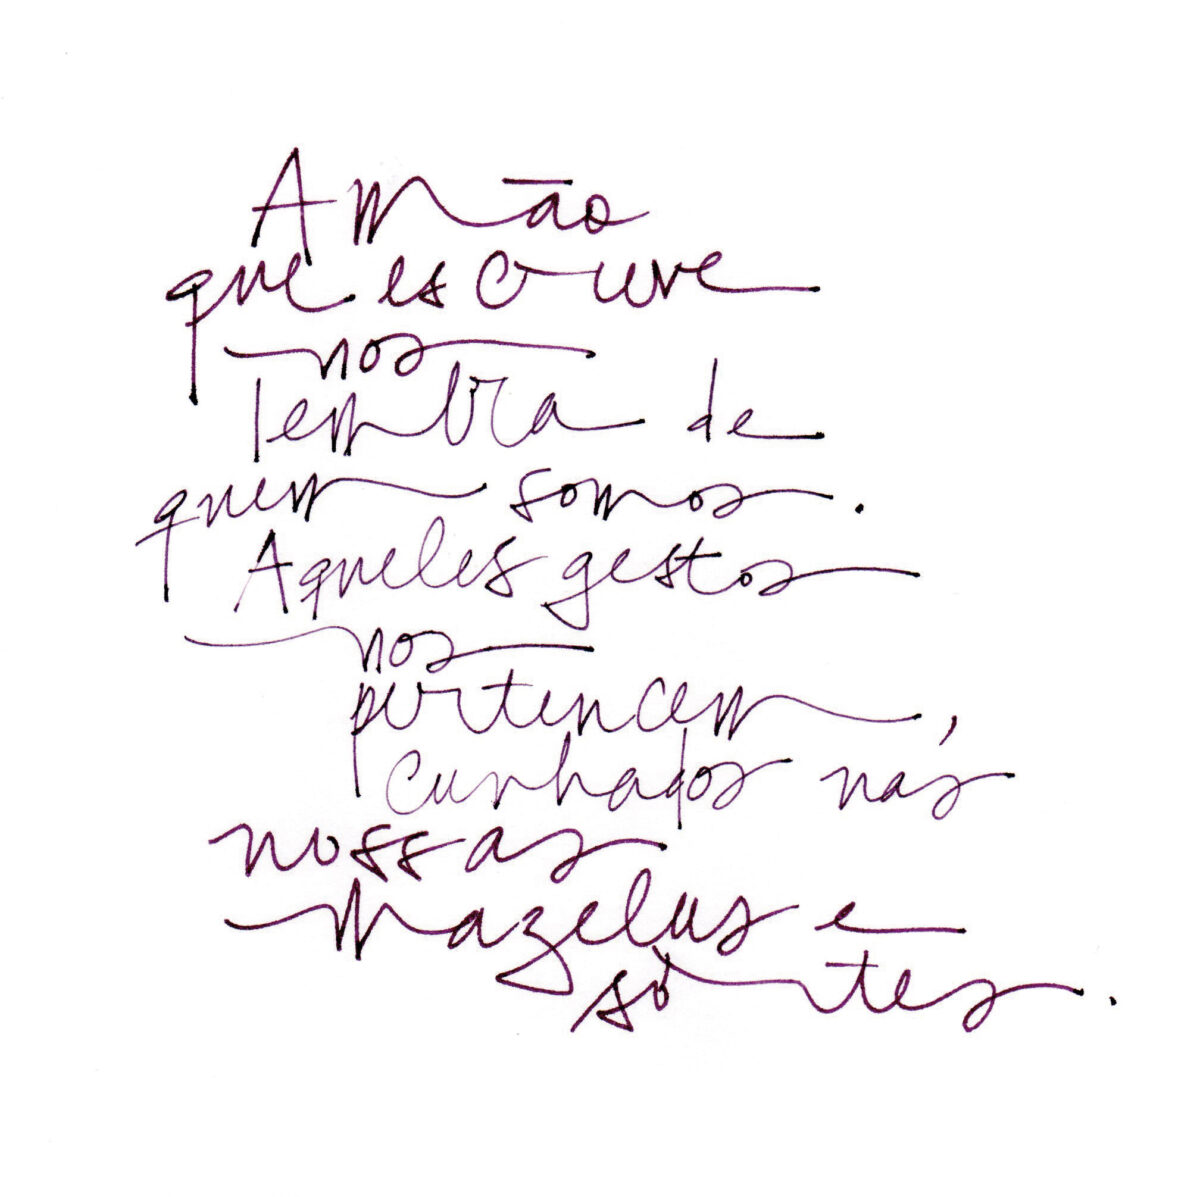 A mão
que escreve
nos
lembra de
quem somos.
Aqueles gestos
nos
pertencem,
cunhados nas
nossas
mazelas e
sortes.